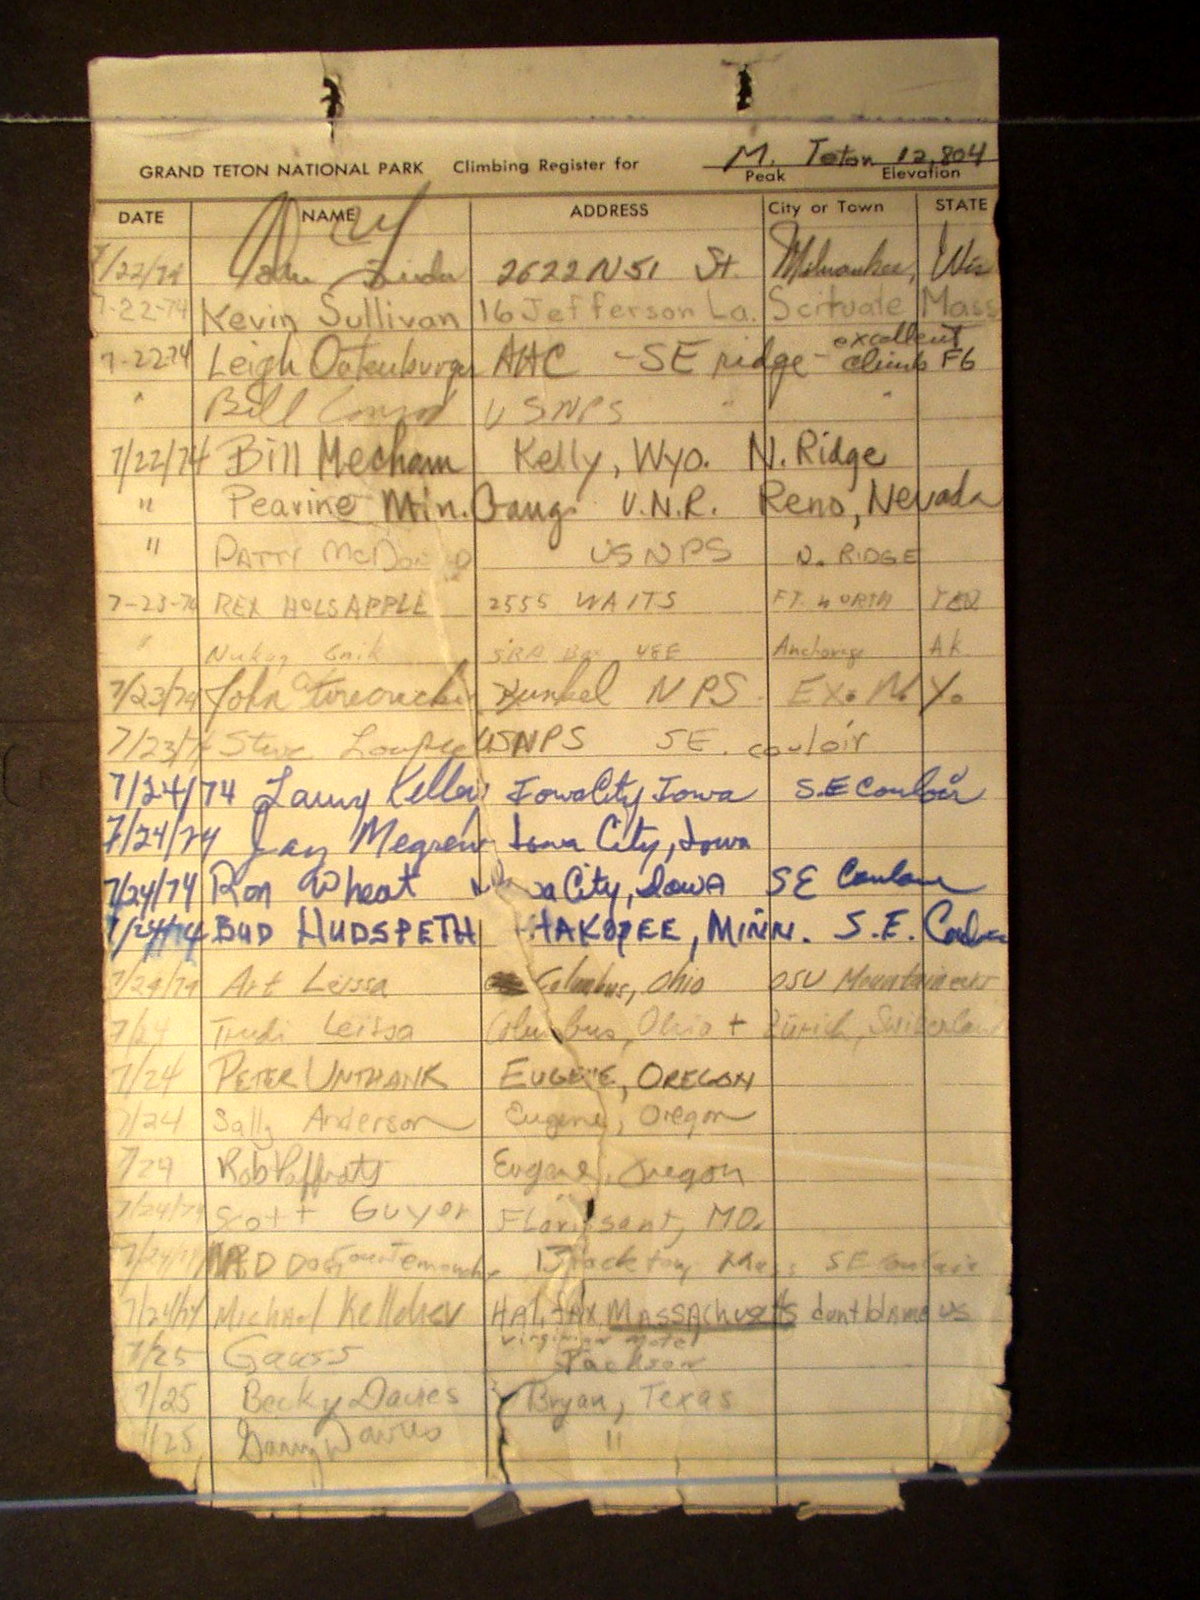 M. Teton 12,804
GRAND TETON NATIONAL PARK Climbing Register for Peak Elevation
DATE NAME ADDRESS City or Town STATE
7/22/74 2622 N 51 St. Milwaukee, Wis
7-22-74 Kevin Sullivan 16 Jefferson La. Scituate Mass
excellent
7-22-74 Leigh AAC - SE ridge - climb F6
" Bill USNPS " "
7/22/74 Bill Mecham Kelly, Wyo. N. Ridge
" Peavine Min. Gang. U.N.R. Reno, Nevada
" PATTY McDONALD USNPS N. RIDGE
7-23-74 REX HOLSAPPLE 2555 WAITS FT. WORTH TEX
" SRA Box 48E Anchorage AK.
7/23/74 John Kunkel NPS Ex. N.Y.
7/23/74 Steve USNPS SE. couloir
7/24/74 Larry Iowa City Iowa S.E Couloir
7/24/74 Jay Megrew Iowa City, Iowa
7/24/74 Ron Wheat City, Iowa SE Couloir
7/24/74 BUD HUDSPETH HAKOPEE, MINN. S.E. Couloir
7/24/74 Art Leissa Columbus, Ohio OSU Mountaineers
7/24 Trudi Leissa Columbus, Ohio + Zürich, Switzerland
7/24 PETER UNTHANK EUGENE, OREGON
7/24 Sally Anderson Eugene, Oregon
7/24 Rob Eugene, Oregon
7/24/74 Scott Guyer Florissant, MO.
7/24/74 Brockton, SE Couloir
7/24/74 Michael HALIFAX, MASSACHUSETTS dont blame us
virginian motel
7/25 Gauss Jackson
7/25 Becky Davies Bryan, Texas
7/25 Danny Davies "